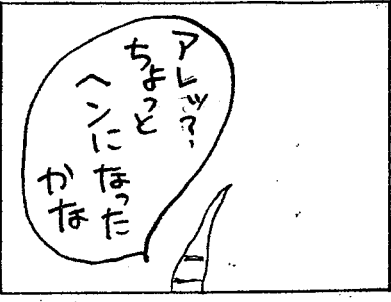 アレッ?
ちょっと
ヘンになった
かな